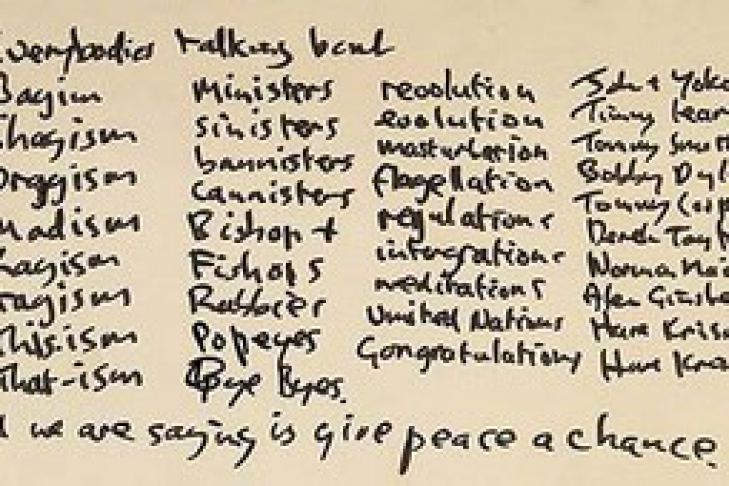 Everybodies talking bout
Bagism
Shagism
Draggism
Madism
Ragism
Tagism
This-ism
That-ism
Ministers
sinisters
bannisters
Cannisters
Bishops
Fishops
Rabbies
Popeyes
Bye Byes.
revolution
evolution
masturbation
flagellation
regulations
intergrations
meditations
United Nations
Congratulations
John + Yoko
Timmy Lear
Tommy
Bobby Dyl
Tommy
Derek Tayl
Norman Mai
Alen Ginsbe
Hare Kris
Hare Kra
we are saying is give peace a chance.